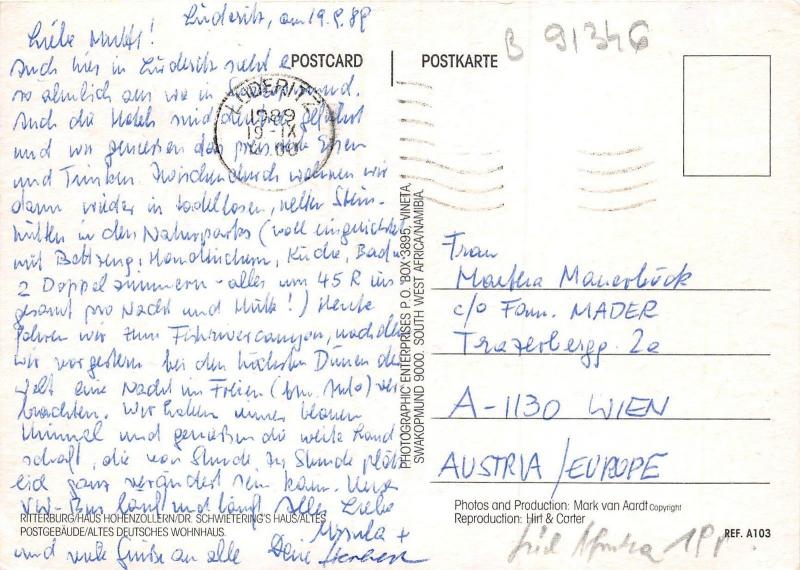 Lüderitz, am 19.9.89
B 91346
POSTCARD
POSTKARTE
Liebe
Auch hier in Lüderitz sieht e
so ähnlich aus wie in
Auch die Hotels sind deutsch geführt
und wir geniessen das Essen
und Trinken. Zwischendurch wohnen wir
dann wieder in tadellosen, netten Stein-
hütten in den Naturparks (voll eingerichtet
mit Bettzeug, Handtüchern, Küche, Bad +
2 Doppelzimmern - alles um 45 R ins
gesamt pro Nacht und Hütte!) Heute
fahren wir zum Fishrivercanyon, nachdem
wir vorgestern bei den höchsten Dünen der
Welt eine Nacht im Freien (bzw. Auto) ver
brachten. Wir haben immer blauen
Himmel und geniessen die weite Land
schaft, die von Stunde zu Stunde plötz
lich ganz verändert sein kann. Unser
VW-Bus läuft und läuft. Alles Liebe
Ursula +
und viele Grüsse an alle Deine
LÜDERITZ
1989
19-IX
00
PHOTOGRAPHIC ENTERPRISES P.O. BOX 3895, VINETA,
SWAKOPMUND 9000. SOUTH WEST AFRICA/NAMIBIA.
Frau
Martha Mauerböck
c/o Fam. MADER
Trazerbergg. 2a
A-1130 WIEN
AUSTRIA/EUROPE
RITTERBURG/HAUS HOHENZOLLERN/DR. SCHWIETERING'S HAUS/ALTES
POSTGEBÄUDE/ALTES DEUTSCHES WOHNHAUS.
Photos and Production: Mark van Aardt Copyright
Reproduction: Hirt & Carter
REF. A103
Süd Afrika